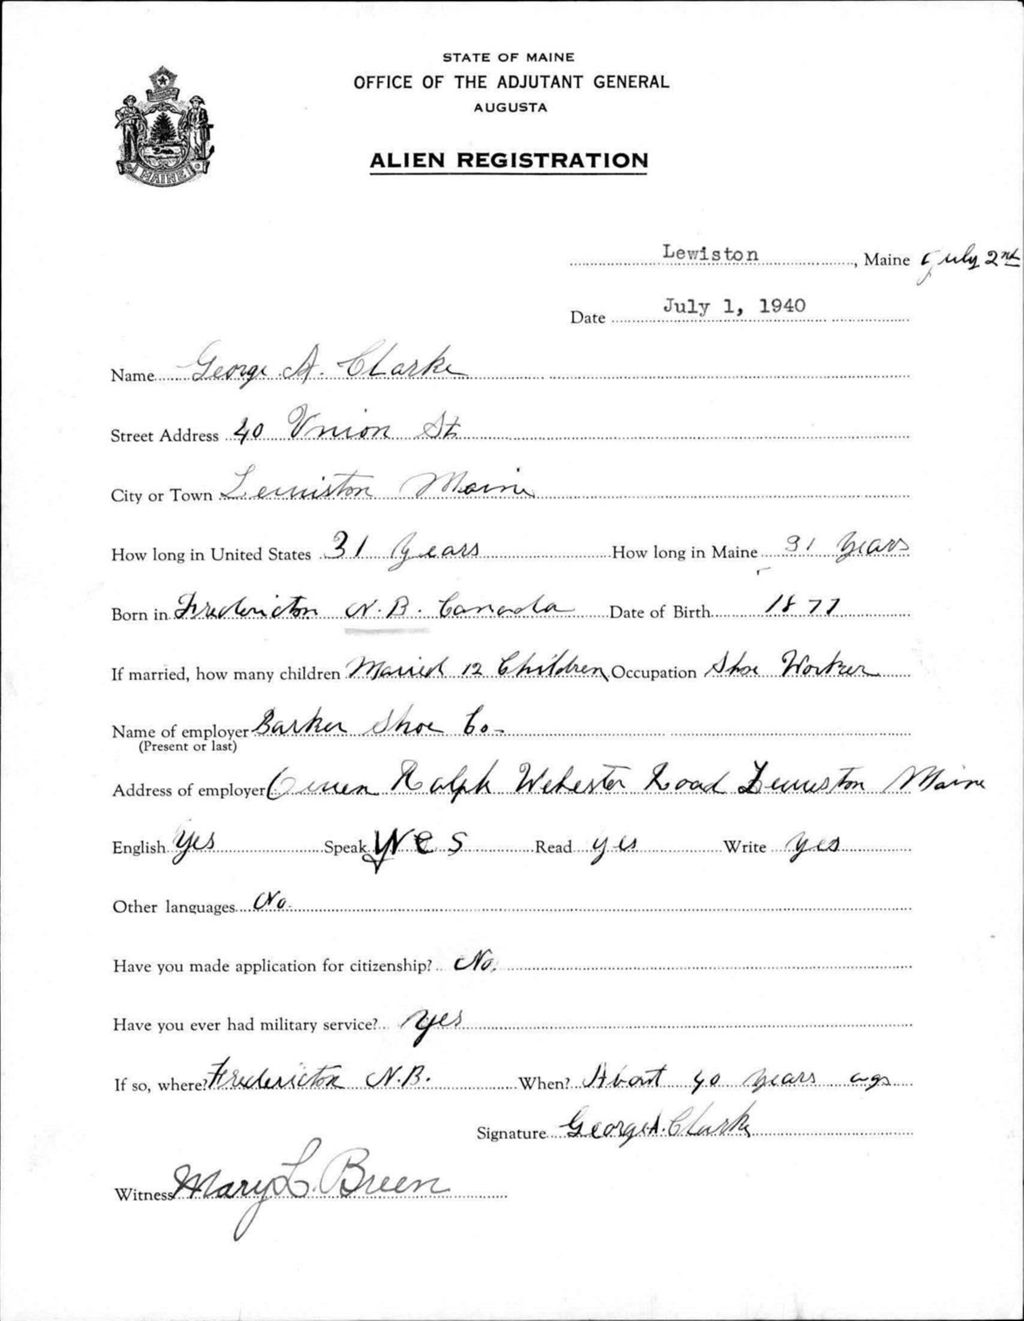 STATE OF MAINE
OFFICE OF THE ADJUTANT GENERAL
AUGUSTA
ALIEN REGISTRATION
MAINE
Lewiston, Maine July 2nd
Date July 1, 1940
Name George A. Clarke
Street Address 40 Union St
City or Town Lewiston Maine
How long in United States 31 years How long in Maine 31 years
Born in Fredericton N.B. Canada Date of Birth 1877
If married, how many children Married 12 Children Occupation Shoe Worker
Name of employer Barker Shoe Co-
(Present or last)
Address of employer Ralph Webester Road Lewiston Maine
English Yes Speak yes Read yes Write yes
Other languages No.
Have you made application for citizenship? No.
Have you ever had military service? yes
If so, where? Fredericton N.B. When? About 40 years ago
Signature George A. Clarke
Witness Mary L. Breen